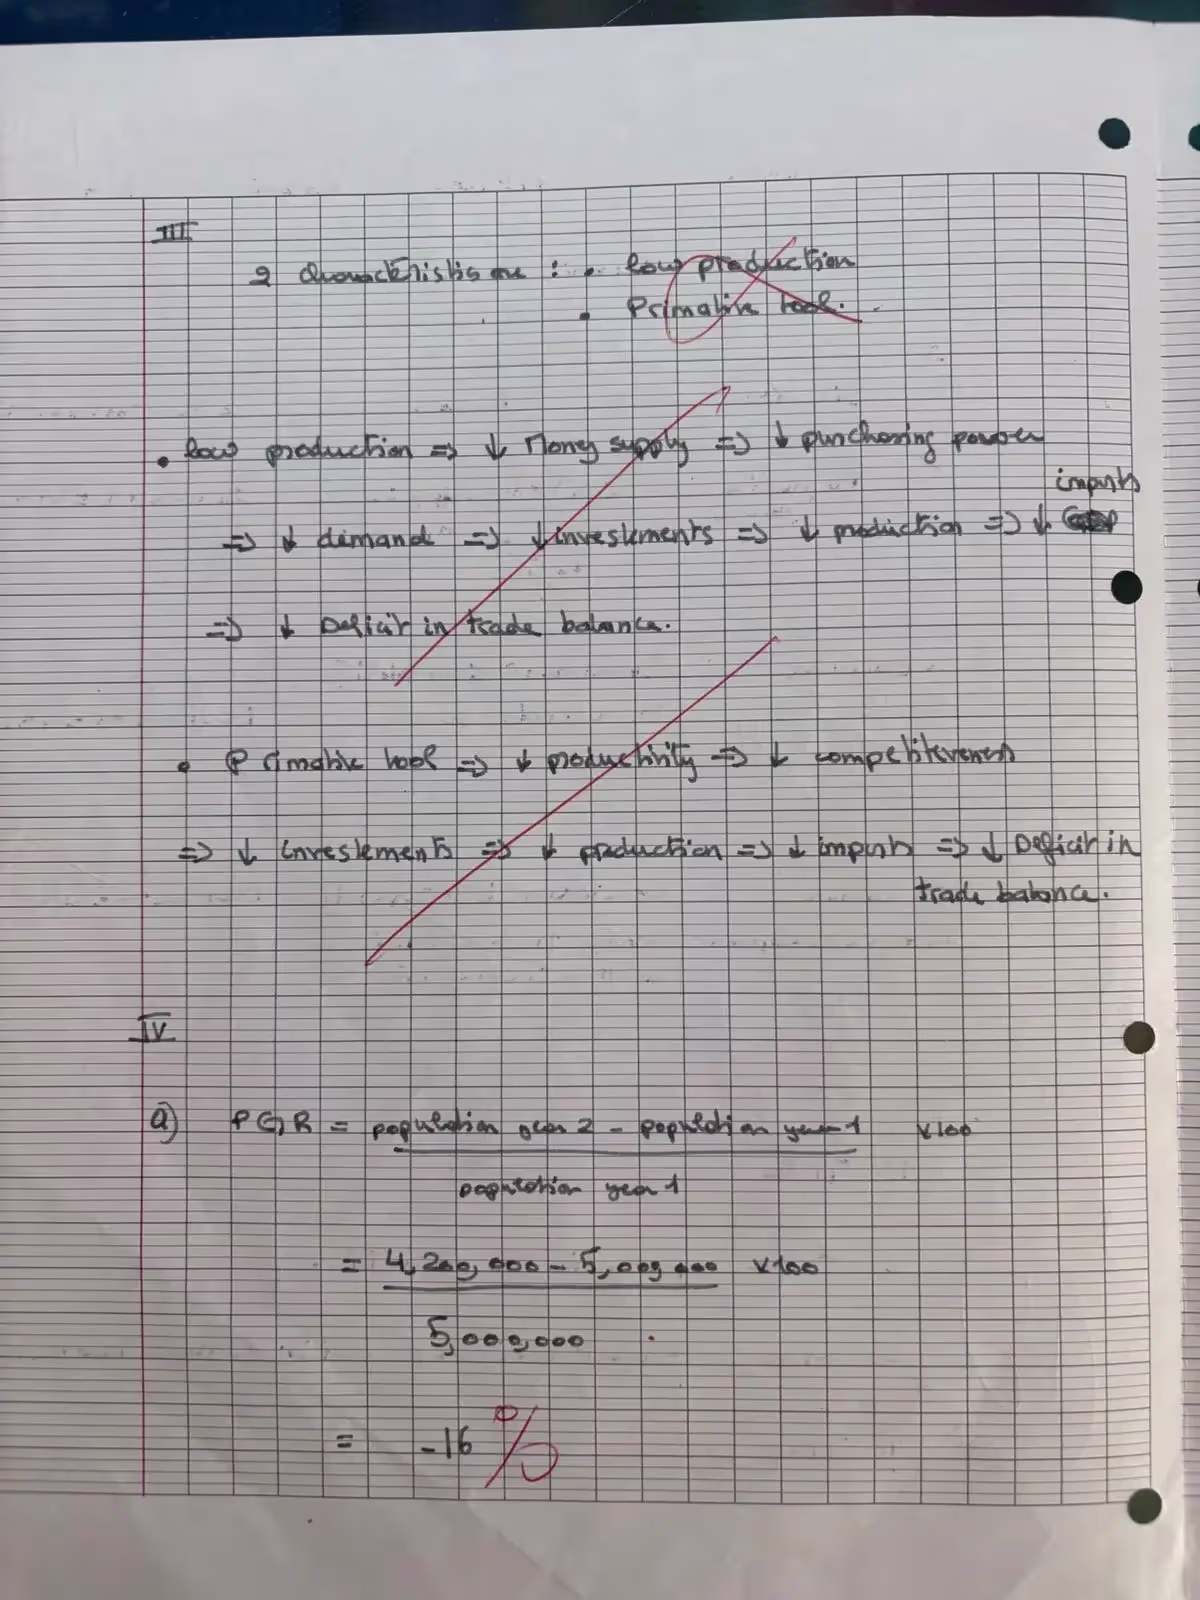 III
2 characteristis are : • low production
• Primative tool.
• low production => ↓ Money supply => ↓ purchasing power
=> ↓ demand => ↓ investements => ↓ production => ↓ imputs
=> ↓ Deficit in trade balance.
• Primative tool => ↓ productivity => ↓ competiteveness
=> ↓ investements => ↓ production => ↓ imputs => ↓ Deficit in
trade balance.
IV
a) PGR = population year 2 - population year 1 x100
population year 1
= 4,200,000 - 5,000,000 x100
5,000,000
= -16 %